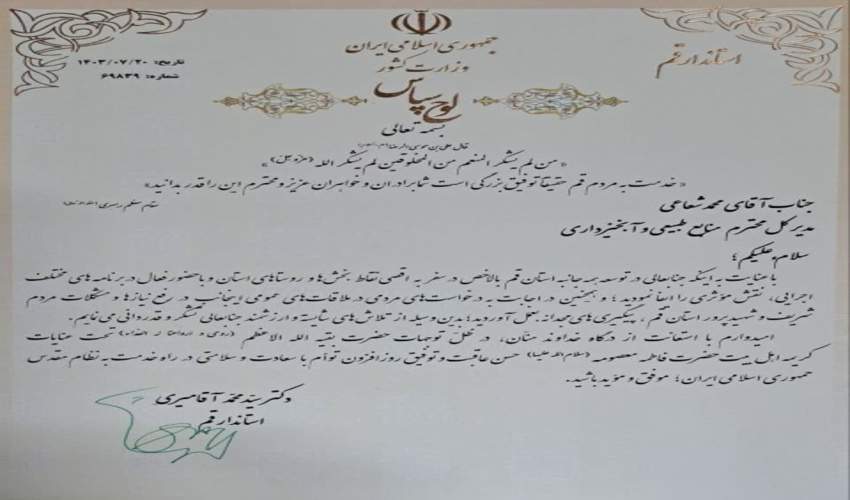 جمهوری اسلامی ایران
وزارت کشور
استاندار قم
تاریخ: ۱۴۰۳/۰۷/۲۰
شماره: ۶۹۸۳۹
لوح سپاس
بسمه تعالی
قال علی بن موسی الرضا
«من لم یشکر المنعم من المخلوقین لم یشکر الله (عزوجل)»
«خدمت به مردم قم حقیقتا توفیق بزرگی است شما برادران و خواهران عزیز و محترم این را قدر بدانید»
مقام معظم رهبری
جناب آقای محمد شعاعی
مدیر کل محترم منابع طبیعی و آبخیزداری
سلام علیکم؛
با عنایت به اینکه جنابعالی در توسعه همه جانبه استان قم بالاخص در سفر به اقصی نقاط بخش ها و روستاهای استان و با حضور فعال در برنامه های مختلف
اجرایی، نقش مؤثری را ایفا نمودید؛ و همچنین در اجابت به درخواست های مردمی در ملاقات های عمومی اینجانب در رفع نیازها و مشکلات مردم
شریف و شهید پرور استان قم، پیگیری های مجدانه بعمل آوردید؛ بدین وسیله از تلاش های شایسته و ارزشمند جنابعالی تشکر و قدردانی می نمایم.
امیدوارم با استعانت از درگاه خداوند منان، در ظل توجهات حضرت بقیه الله الاعظم (روحی و ارواحنا له الفداء) تحت عنایات
کریمه اهل بیت حضرت فاطمه معصومه (سلام الله علیها) حسن عاقبت و توفیق روز افزون توأم با سعادت و سلامتی در راه خدمت به نظام مقدس
جمهوری اسلامی ایران؛ موفق و مؤید باشید.
دکتر سید محمد آقامیری
استاندار قم